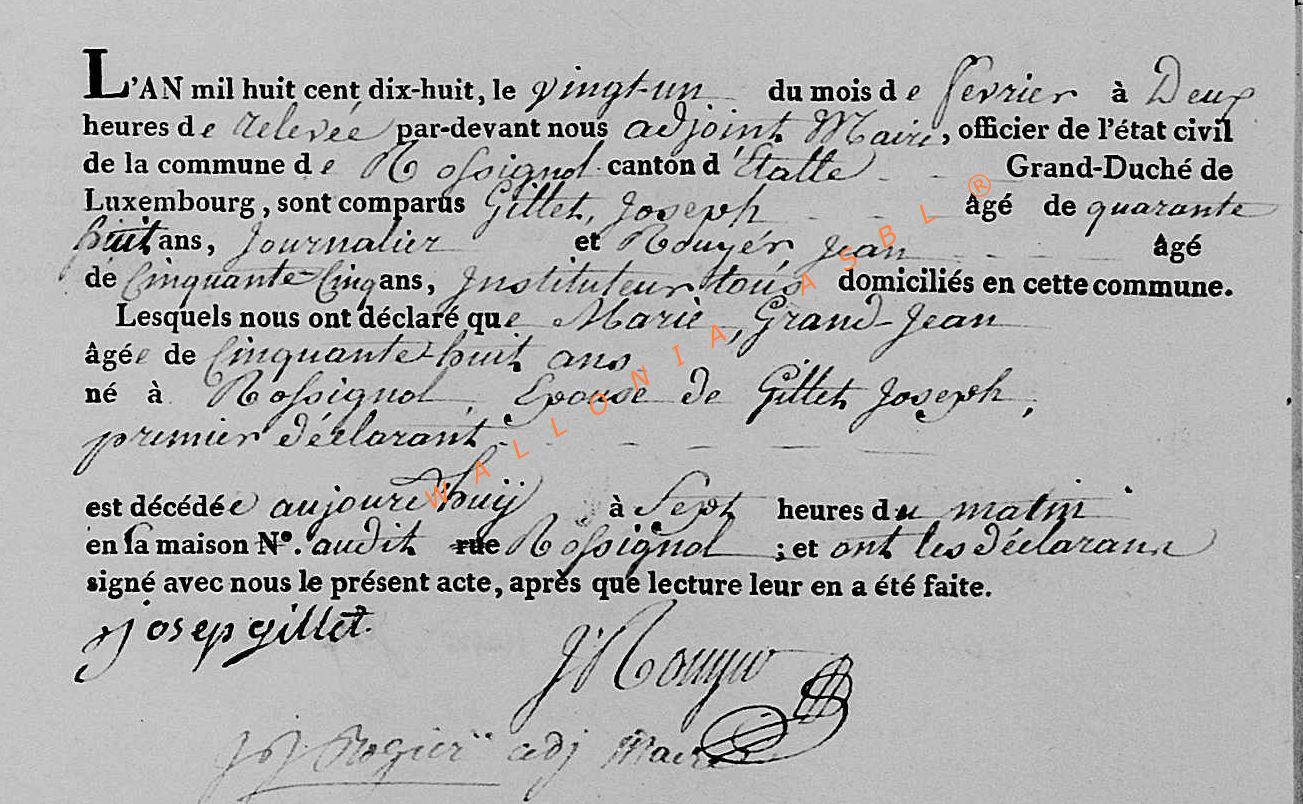 L'AN mil huit cent dix-huit, le vingt-un du mois de fevrier à Deux
heures de relevée par-devant nous adjoint Maire, officier de l'état civil
de la commune de Rossignol canton d'Etalle Grand-Duché de
Luxembourg, sont comparus Gillet, Joseph âgé de quarante
huit ans, Journalier et Rouyer, Jean âgé
de Cinquante-Cinq ans, Instituteur tous domiciliés en cette commune.
Lesquels nous ont déclaré que Marie, Grand-Jean
âgée de Cinquante-huit ans
né à Rossignol, Epouse de Gillet Joseph,
premier déclarant
est décédée aujourd'huy à Sept heures du matin
en sa maison No. audit rue Rossignol ; et ont les déclarans
signé avec nous le présent acte, après que lecture leur en a été faite.
Josep gillet.
J Rouyer
J J Rogier adj Maire
WALLONIA ASBL ®